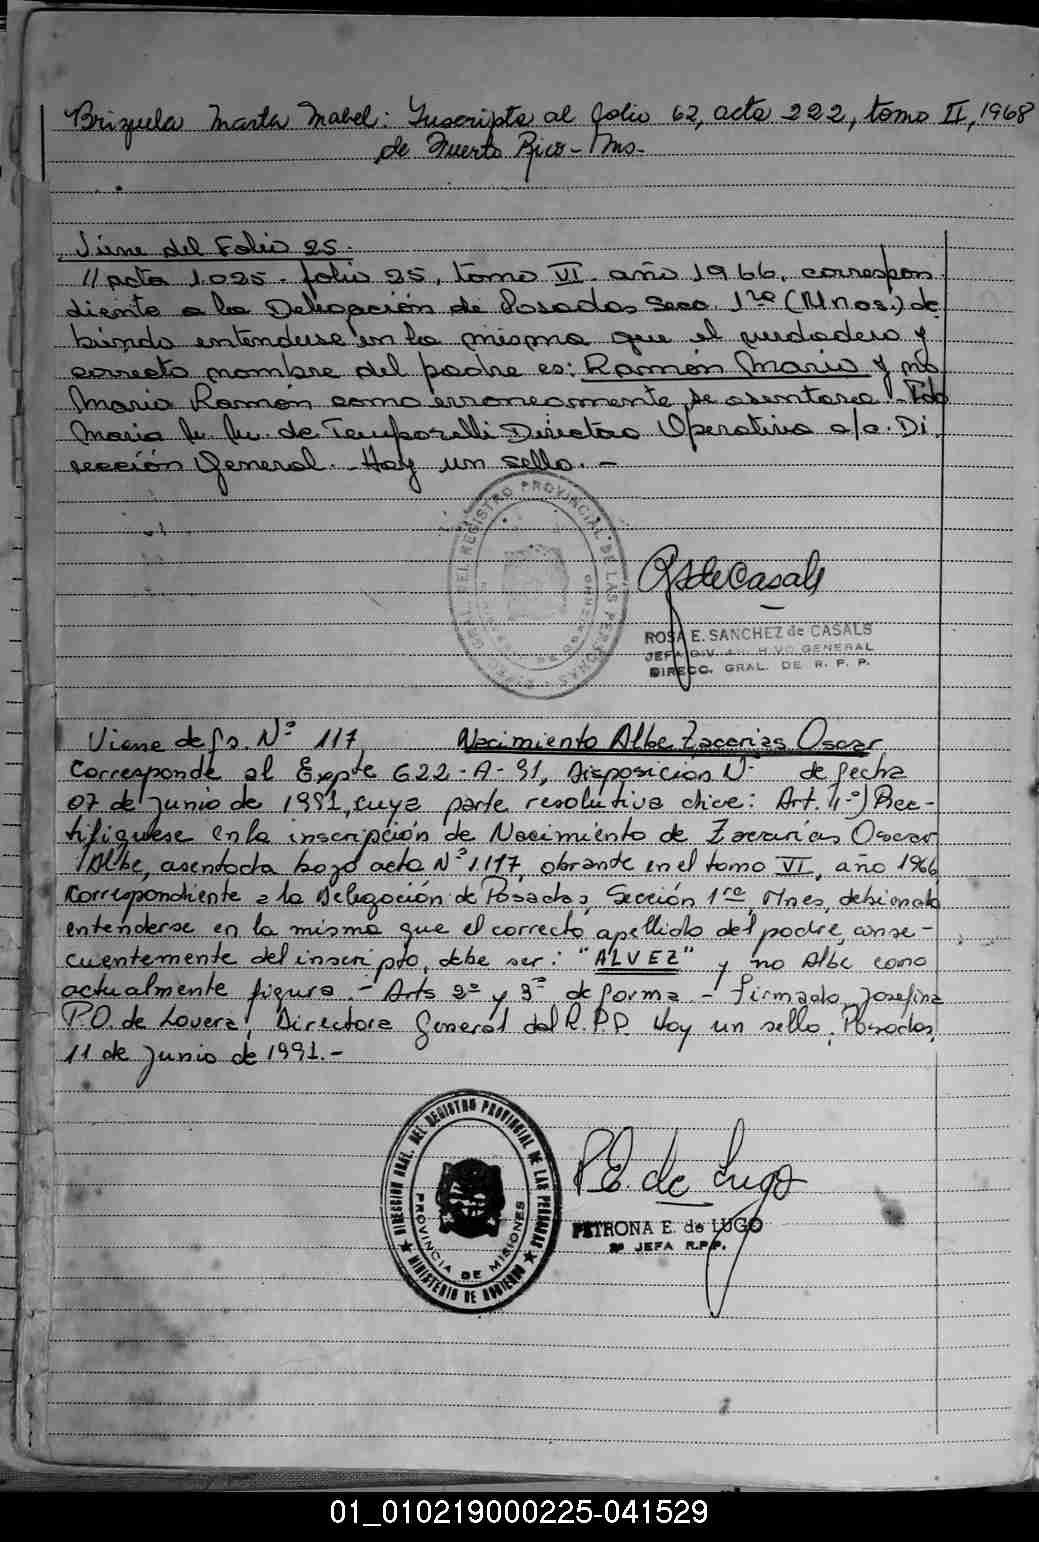 Brizuela Marta Mabel: Inscripta al folio 62, acta 222, tomo II, 1968
de Puerto Rico - Mns -
Viene del Folio 25.
// acta 1.025 - folio 25, tomo VI año 1966, correspon
diente a la Delegación de Posadas Secc. 1ra (Mnes.) de
biendo entenderse en la misma que el verdadero y
correcto nombre del padre es: Ramón Mario y no
Mario Ramón como erroneamente se asentara - Fdo
Maria de de Temporelli Directora Operativa a/c. Di
rección General. - Hay un sello. -
DIREC. GRAL. DEL REGISTRO PROVINCIAL DE LAS PERSONAS
RS de Casals
ROSA E. SANCHEZ de CASALS
JEFA DIV. ARCHIVO GENERAL
DIRECC. GRAL. DE R. P. P.
Viene de fs. Nº 117, Nacimiento Albe Zacarias Oscar
Corresponde al Expte 622-A-91, Disposición Nº de fecha
07 de junio de 1991, cuya parte resolutiva dice: Art. 1º) Rec-
tifiquese en la inscripción de Nacimiento de Zacarías Oscar
Albe, asentada bajo acta Nº 1.117, obrante en el tomo VI, año 1966
Correspondiente a la Delegación de Posadas, Sección 1ra, Mnes, debiendo
entenderse en la misma que el correcto apellido del padre, conse-
cuentemente del inscripto, debe ser: "ALVEZ" y no Albe como
actualmente figura. - Arts 2º y 3º de forma - Firmado Josefina
P.O. de Lovera, Directora General del R.P.P. Hay un sello, Posadas,
11 de junio de 1991. -
DIRECCION GRAL. DEL REGISTRO PROVINCIAL DE LAS PERSONAS
PROVINCIA DE MISIONES
MINISTERIO DE GOBIERNO
P.E. de Lugo
PETRONA E. de LUGO
2º JEFA R.P.P.
01_010219000225-041529